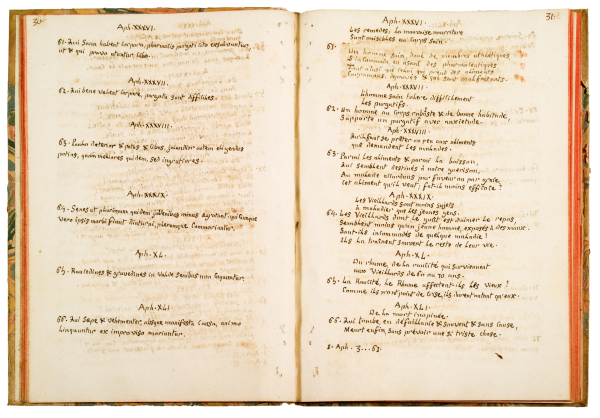 30
Aph. XXXVI.
61. Qui Sana habet Corpora, pharmatis purgati cito exsolvuntur,
ut & qui pravo utuntur Cibo.
Aph. XXXVII.
62. Qui bene valent Corpore, purgatu sunt difficiles.
Aph. XXXVIII.
63. Paulo deterior & potus & Cibus, jucundior autem eligendus
potius, quam meliores quidem, sed ingratiores.
Aph. XXXIX.
64. Senes ut plurimum quidem juvenibus minus ægrotant, qui Cunque
Vero ipsis morbi fiunt diuturni, plerumque Commoriuntur.
Aph. XL.
65. Raucedines & gravedines in Valde Senibus non Coquuntur.
Aph. XLI.
66. Qui sæpe & Vehementer, absque manifesta Causa, animo
linquuntur ex improviso moriuntur.
31.
Aph. XXXVI.
Les remedes, la mauvaise nourriture
Sont nuisibles au Corps Sain.
61. Un homme Sain, doué de membres athlétiques
en usant des pharmaceutiques
qui prend des aliments
Aph. XXXVII.
L'homme Sain tolere difficilement
Les purgatifs.
62. Un homme au Corps robuste & de bonne habitude,
Supporte un purgatif avec inquietude.
Aph. XXXVIII.
Qu'il faut se prêter un peu aux aliments
que demandent Les malades.
63. Parmi Les aliments & parmi la boisson,
Qui Semblent destinés à notre guérison,
Au malade accordons par faveur ou par grace,
Cet aliment qu'il veut, fut-il moins efficace?
Aph. XXXIX.
Les Vieillards Sont moins Sujets
à maladies que les jeunes gens.
64. Les Vieillards dont Le goût est d'aimer Le repos,
Semblent moins qu'un jeune homme, exposés à des maux.
Sont-ils entamés de quelque maladie?
Ils La traînent Souvent Le reste de Leur vie.
Aph. XL.
Du rhume, de La raucité qui Surviennent
aux Vieillards de 60 ou 70 ans.
65. La Raucité, Le Rhume affectent-ils Les Vieux?
Comme ils n'ont point de Crise, ils durent autant qu'eux.
Aph. XLI.
De La mort inopinée.
66. Qui tombe en défaillance & Souvent & Sans Cause,
Meurt enfin, Sans prévoir une Si triste chose.
2. Aph. 3... 61.